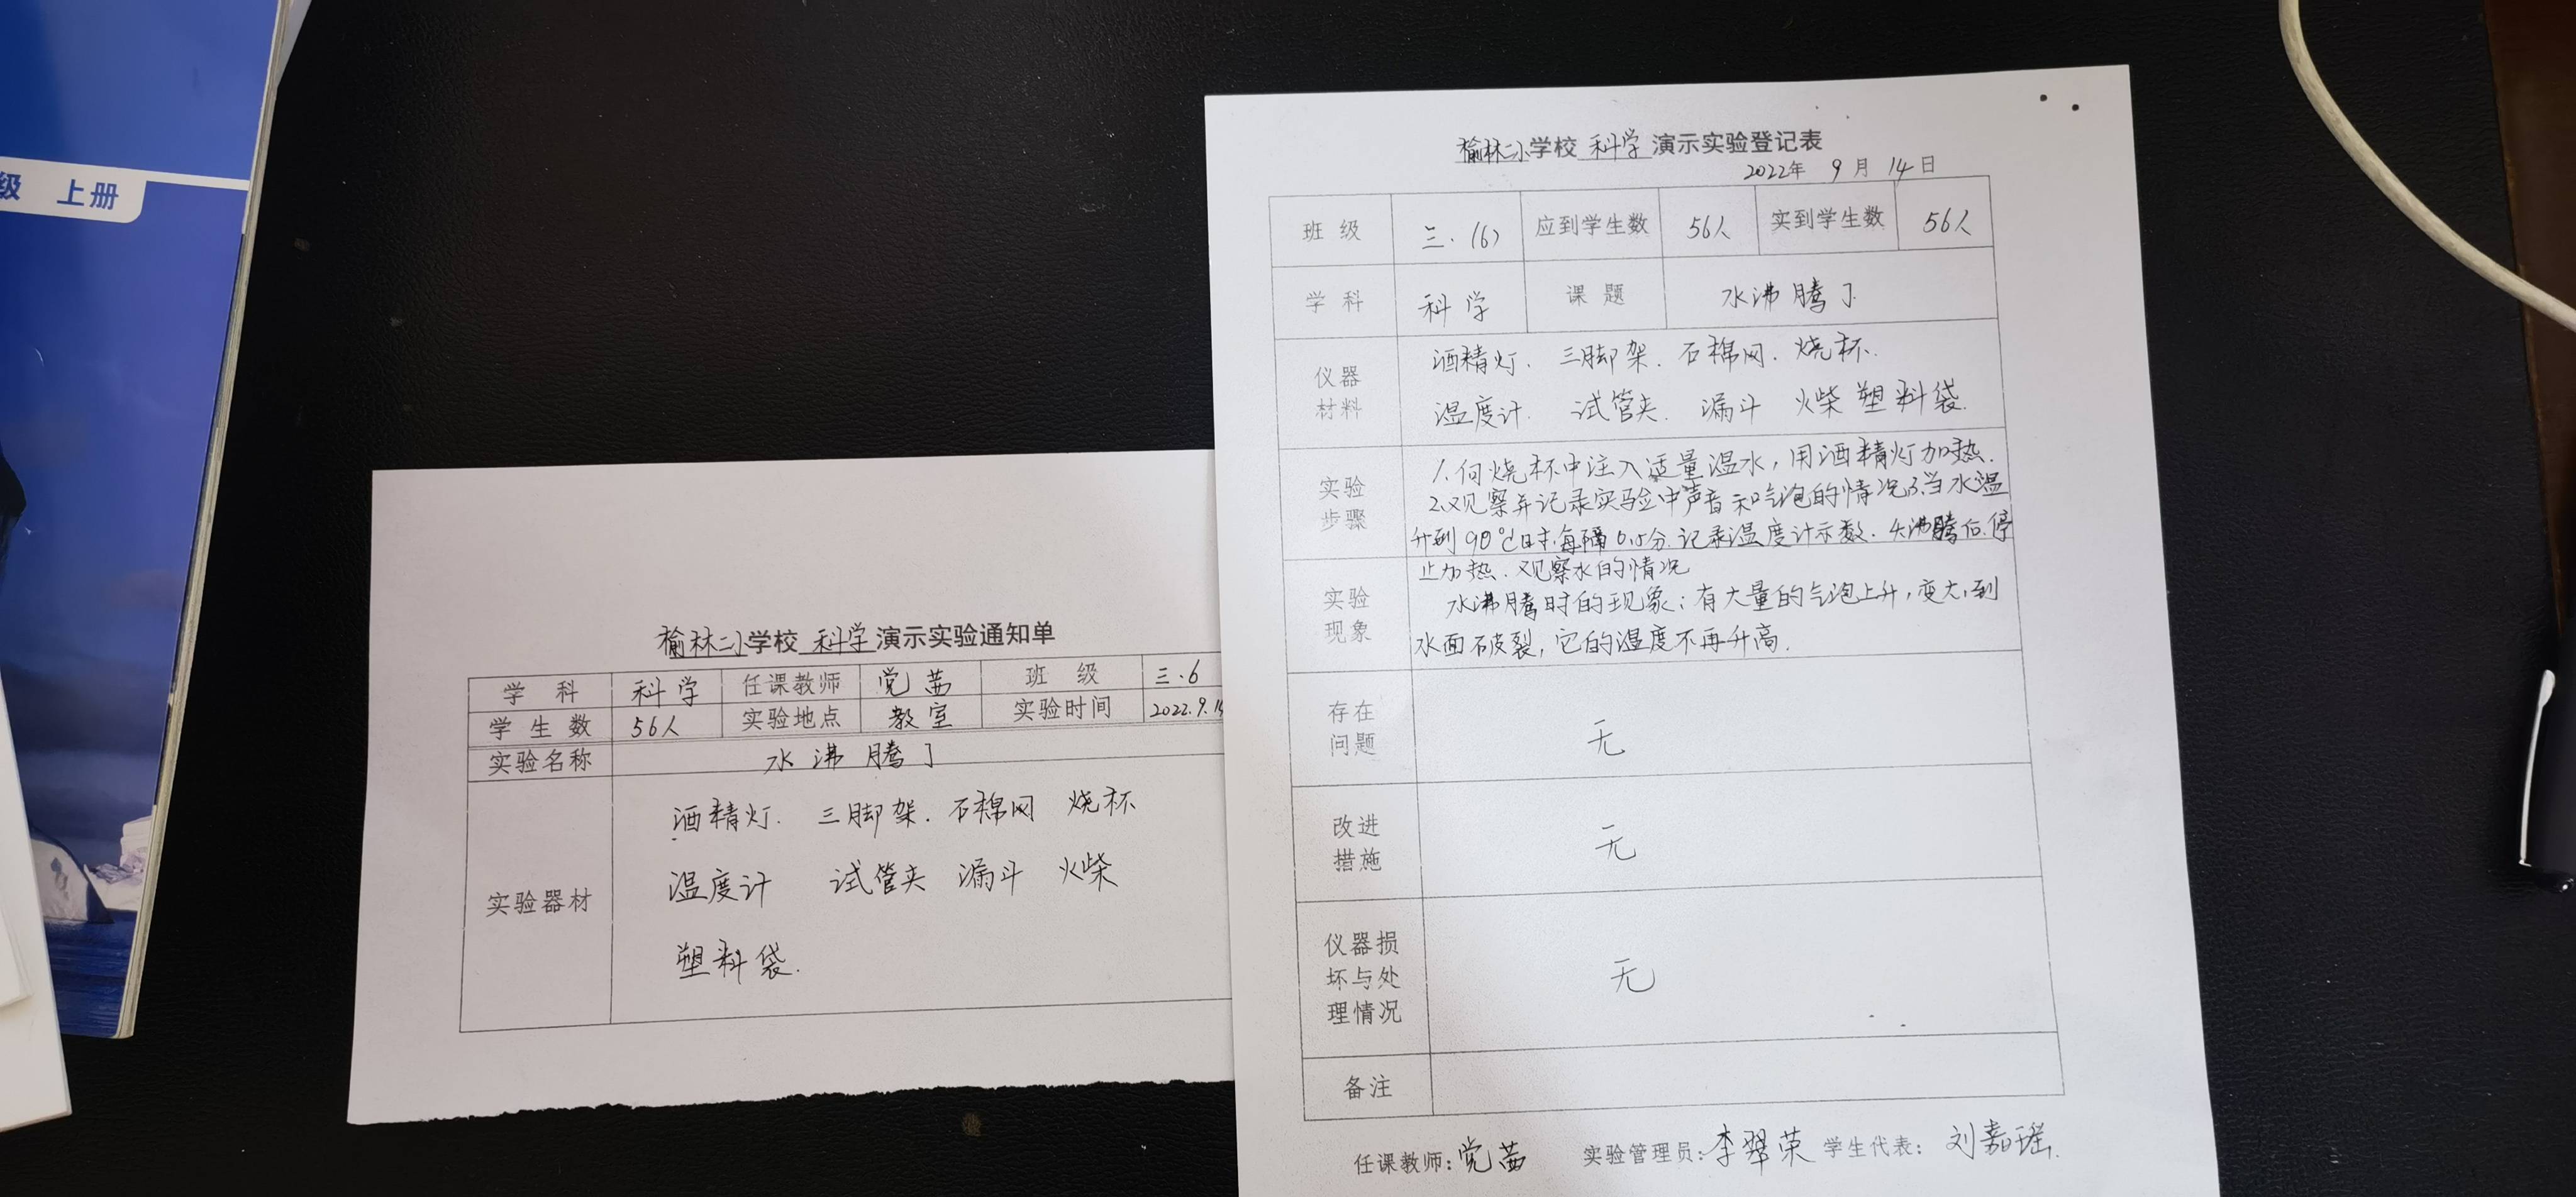 级 上册
榆林二小学校 科学 演示实验通知单
学 科 科学 任课教师 党茜 班 级 三.6
学生数 56人 实验地点 教室 实验时间 2022.9.14
实验名称 水沸腾了
酒精灯. 三脚架. 石棉网 烧杯
实验器材 温度计 试管夹 漏斗 火柴
塑料袋.
榆林二小学校 科学 演示实验登记表
2022年 9月 14日
班 级 三.(6) 应到学生数 56人 实到学生数 56人
学 科 科学 课 题 水沸腾了
仪器 酒精灯. 三脚架. 石棉网. 烧杯.
材料 温度计. 试管夹. 漏斗 火柴 塑料袋.
1.向烧杯中注入适量温水,用酒精灯加热.
实验 2.观察并记录实验中声音和气泡的情况3.当水温
步骤 升到90℃时.每隔0.5分.记录温度计示数.4.沸腾后.停
止加热.观察水的情况
实验 水沸腾时的现象:有大量的气泡上升,变大,到
现象 水面破裂,它的温度不再升高.
存在
问题 无
改进
措施 无
仪器损
坏与处 无
理情况
备注
任课教师:党茜 实验管理员:李翠荣 学生代表:刘嘉瑶.